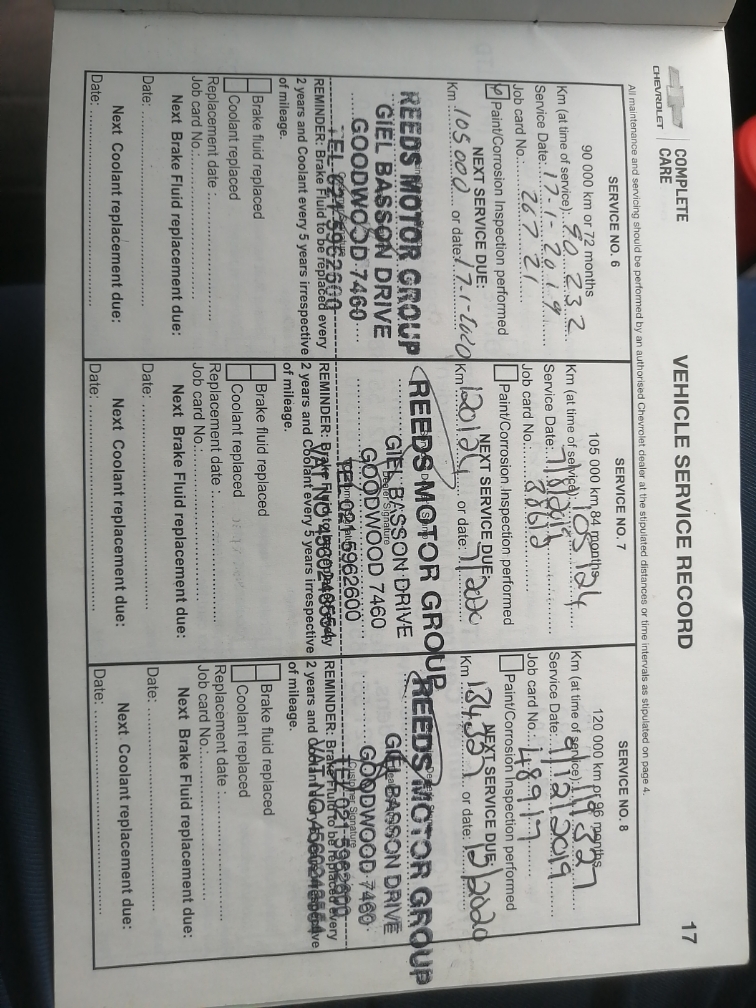 CHEVROLET
COMPLETE
CARE
VEHICLE SERVICE RECORD
17
All maintenance and servicing should be performed by an authorised Chevrolet dealer at the stipulated distances or time intervals as stipulated on page 4.
SERVICE NO. 6
90 000 km or 72 months
Km (at time of service): 90 232
Service Date: 17-1-2019
Job card No: 26721
Paint/Corrosion Inspection performed
NEXT SERVICE DUE:
Km 105000 or date: 17-1-2020
REEDS MOTOR GROUP
GIEL BASSON DRIVE
GOODWOOD 7460
TEL 021 5962600
REMINDER: Brake Fluid to be replaced every
2 years and Coolant every 5 years irrespective
of mileage.
Brake fluid replaced
Coolant replaced
Replacement date :
Job card No.:
Next Brake Fluid replacement due:
Date:
Next Coolant replacement due:
Date:
SERVICE NO. 7
105 000 km 84 months
Km (at time of service): 105124
Service Date:
Job card No.:
Paint/Corrosion Inspection performed
NEXT SERVICE DUE:
Km 120124 or date:
REEDS MOTOR GROUP
GIEL BASSON DRIVE
GOODWOOD 7460
TEL 021 5962600
VAT NO
REMINDER: Brake Fluid to be
2 years and Coolant every 5 years irrespective
of mileage.
Brake fluid replaced
Coolant replaced
Replacement date :
Job card No.:
Next Brake Fluid replacement due:
Date:
Next Coolant replacement due:
Date:
SERVICE NO. 8
120 000 km or 96 months
Km (at time of service):
Service Date: 11/12/2019
Job card No.: 48917
Paint/Corrosion Inspection performed
NEXT SERVICE DUE:
Km 134327 or date: 12/2020
REEDS MOTOR GROUP
GIEL BASSON DRIVE
GOODWOOD 7460
Customer Signature
TEL 021 5962600
VAT NO
REMINDER: Brake Fluid to be replaced every
2 years and
of mileage.
Brake fluid replaced
Coolant replaced
Replacement date :
Job card No.:
Next Brake Fluid replacement due:
Date:
Next Coolant replacement due:
Date: